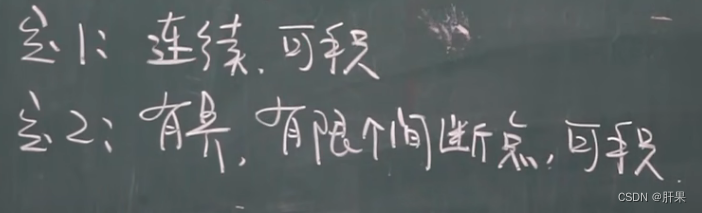 定1：连续，可积
定2：有界，有限个间断点，可积．
CSDN @肝果